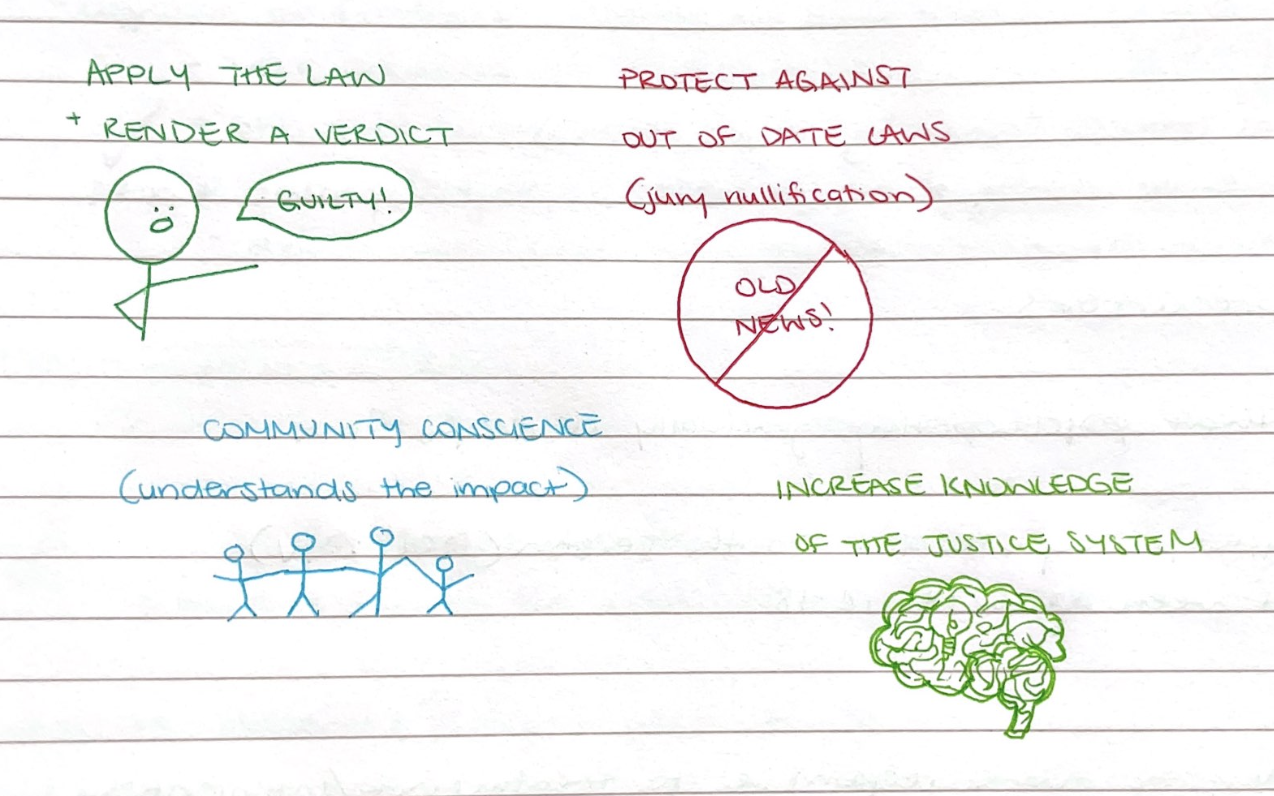 APPLY THE LAW
+ RENDER A VERDICT
GUILTY!
PROTECT AGAINST
OUT OF DATE LAWS
(jury nullification)
OLD
NEWS!
COMMUNITY CONSCIENCE
(understands the impact)
INCREASE KNOWLEDGE
OF THE JUSTICE SYSTEM